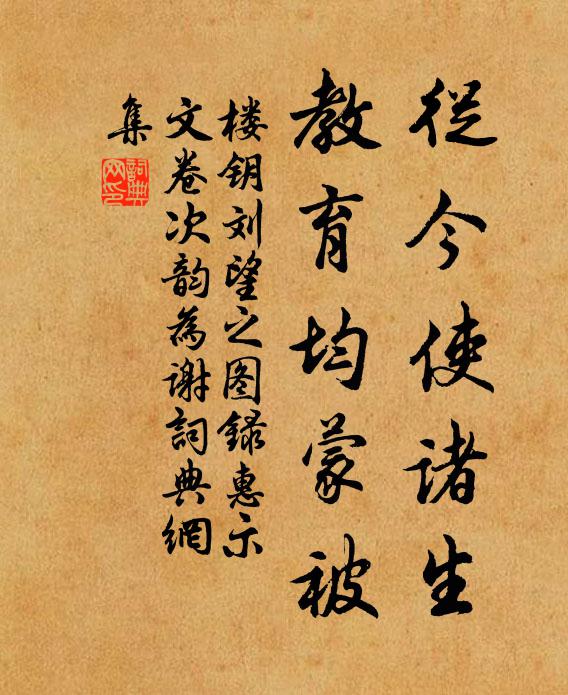 從今使诸生
教育均蒙被
楼钥刘望之图録惠示
文卷次韵為谢詞典網
集
詞典
网印